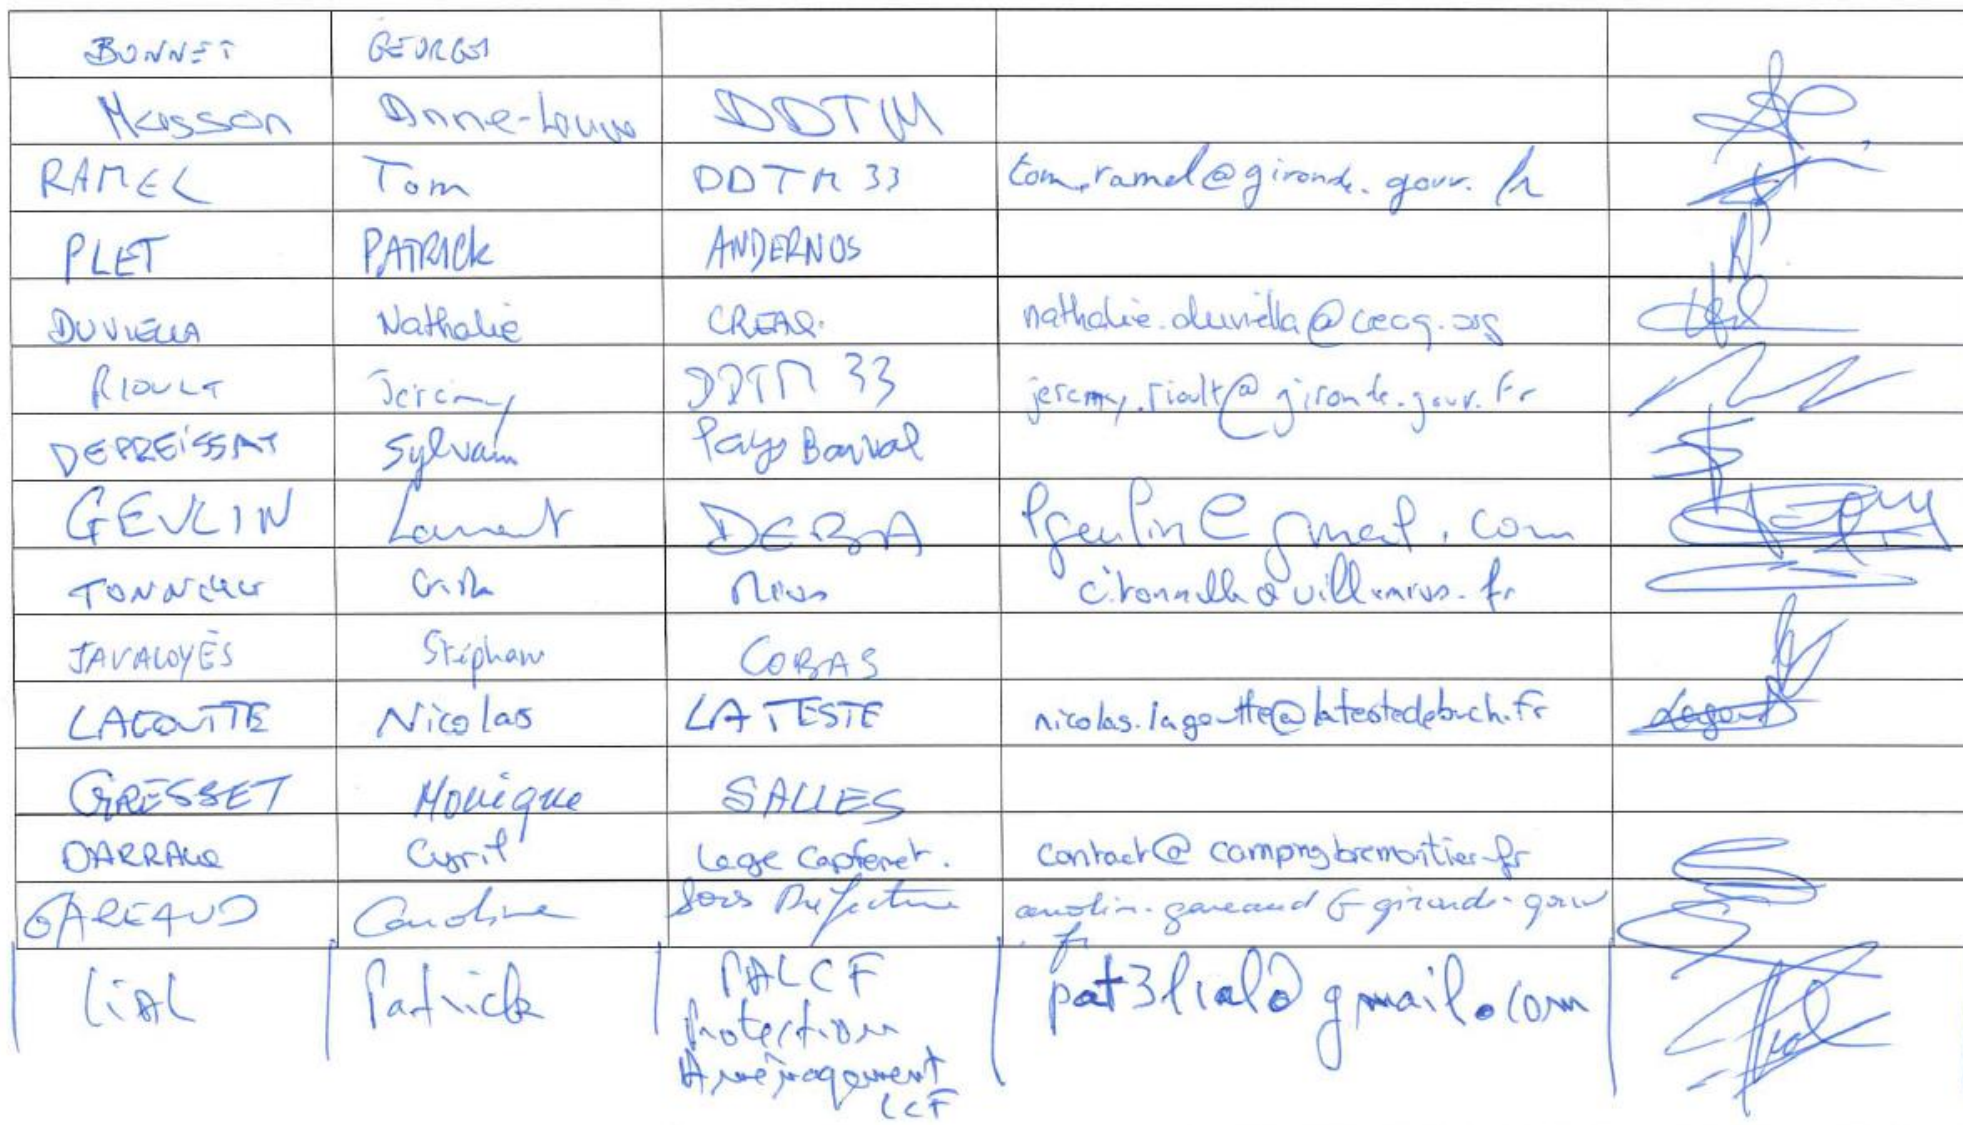 BONNET GEORGES
Masson Anne-Louise DDTM
RAMEL Tom DDTM 33 tom.ramel@gironde.gouv.fr
PLET PATRICK ANDERNOS
DUVIELLA Nathalie CREAQ. nathalie.duviella@creaq.org
RIOULT Jeremy DDTM 33 jeremy.rioult@gironde.gouv.fr
DEPREISSAT Sylvain Pays Barval
GEULIN Laurent DEBA lgeulin@gmail.com
Mios
JAVALOYÈS Stéphan COBAS
LAGOUTTE Nicolas LA TESTE nicolas.lagoutte@latestedebuch.fr
GRESSET Monique SALLES
Cyril Lege Capferret. contact@campingbremontier.fr
GAREAUD Caroline Sous Préfecture
.fr
LiAL Patrick PALCF pat3lial@gmail.com
Protection
Aménagement
LCF